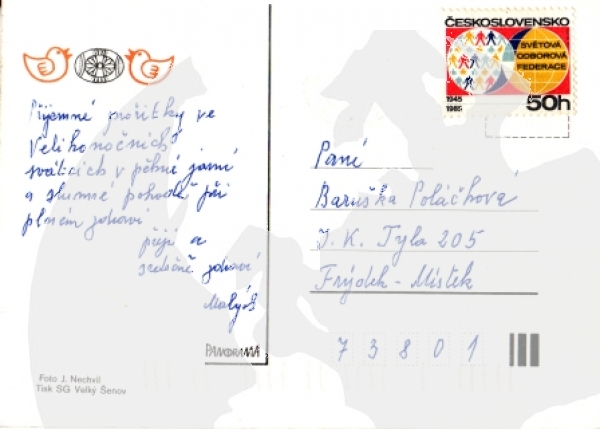 ČESKOSLOVENSKO
SVĚTOVÁ
ODBOROVÁ
FEDERACE
1945
1985
50h
Příjemné prožitky ve
Velikonočních
svátcích v pěkné jarní
a slunné pohodě při
plném zdraví
přeji a
srdečně zdraví
Paní
Baruška Poláchová
J. K. Tyla 205
Frýdek - Místek
73801
PANORAMA
Foto J. Nechvíl
Tisk SG Velký Šenov